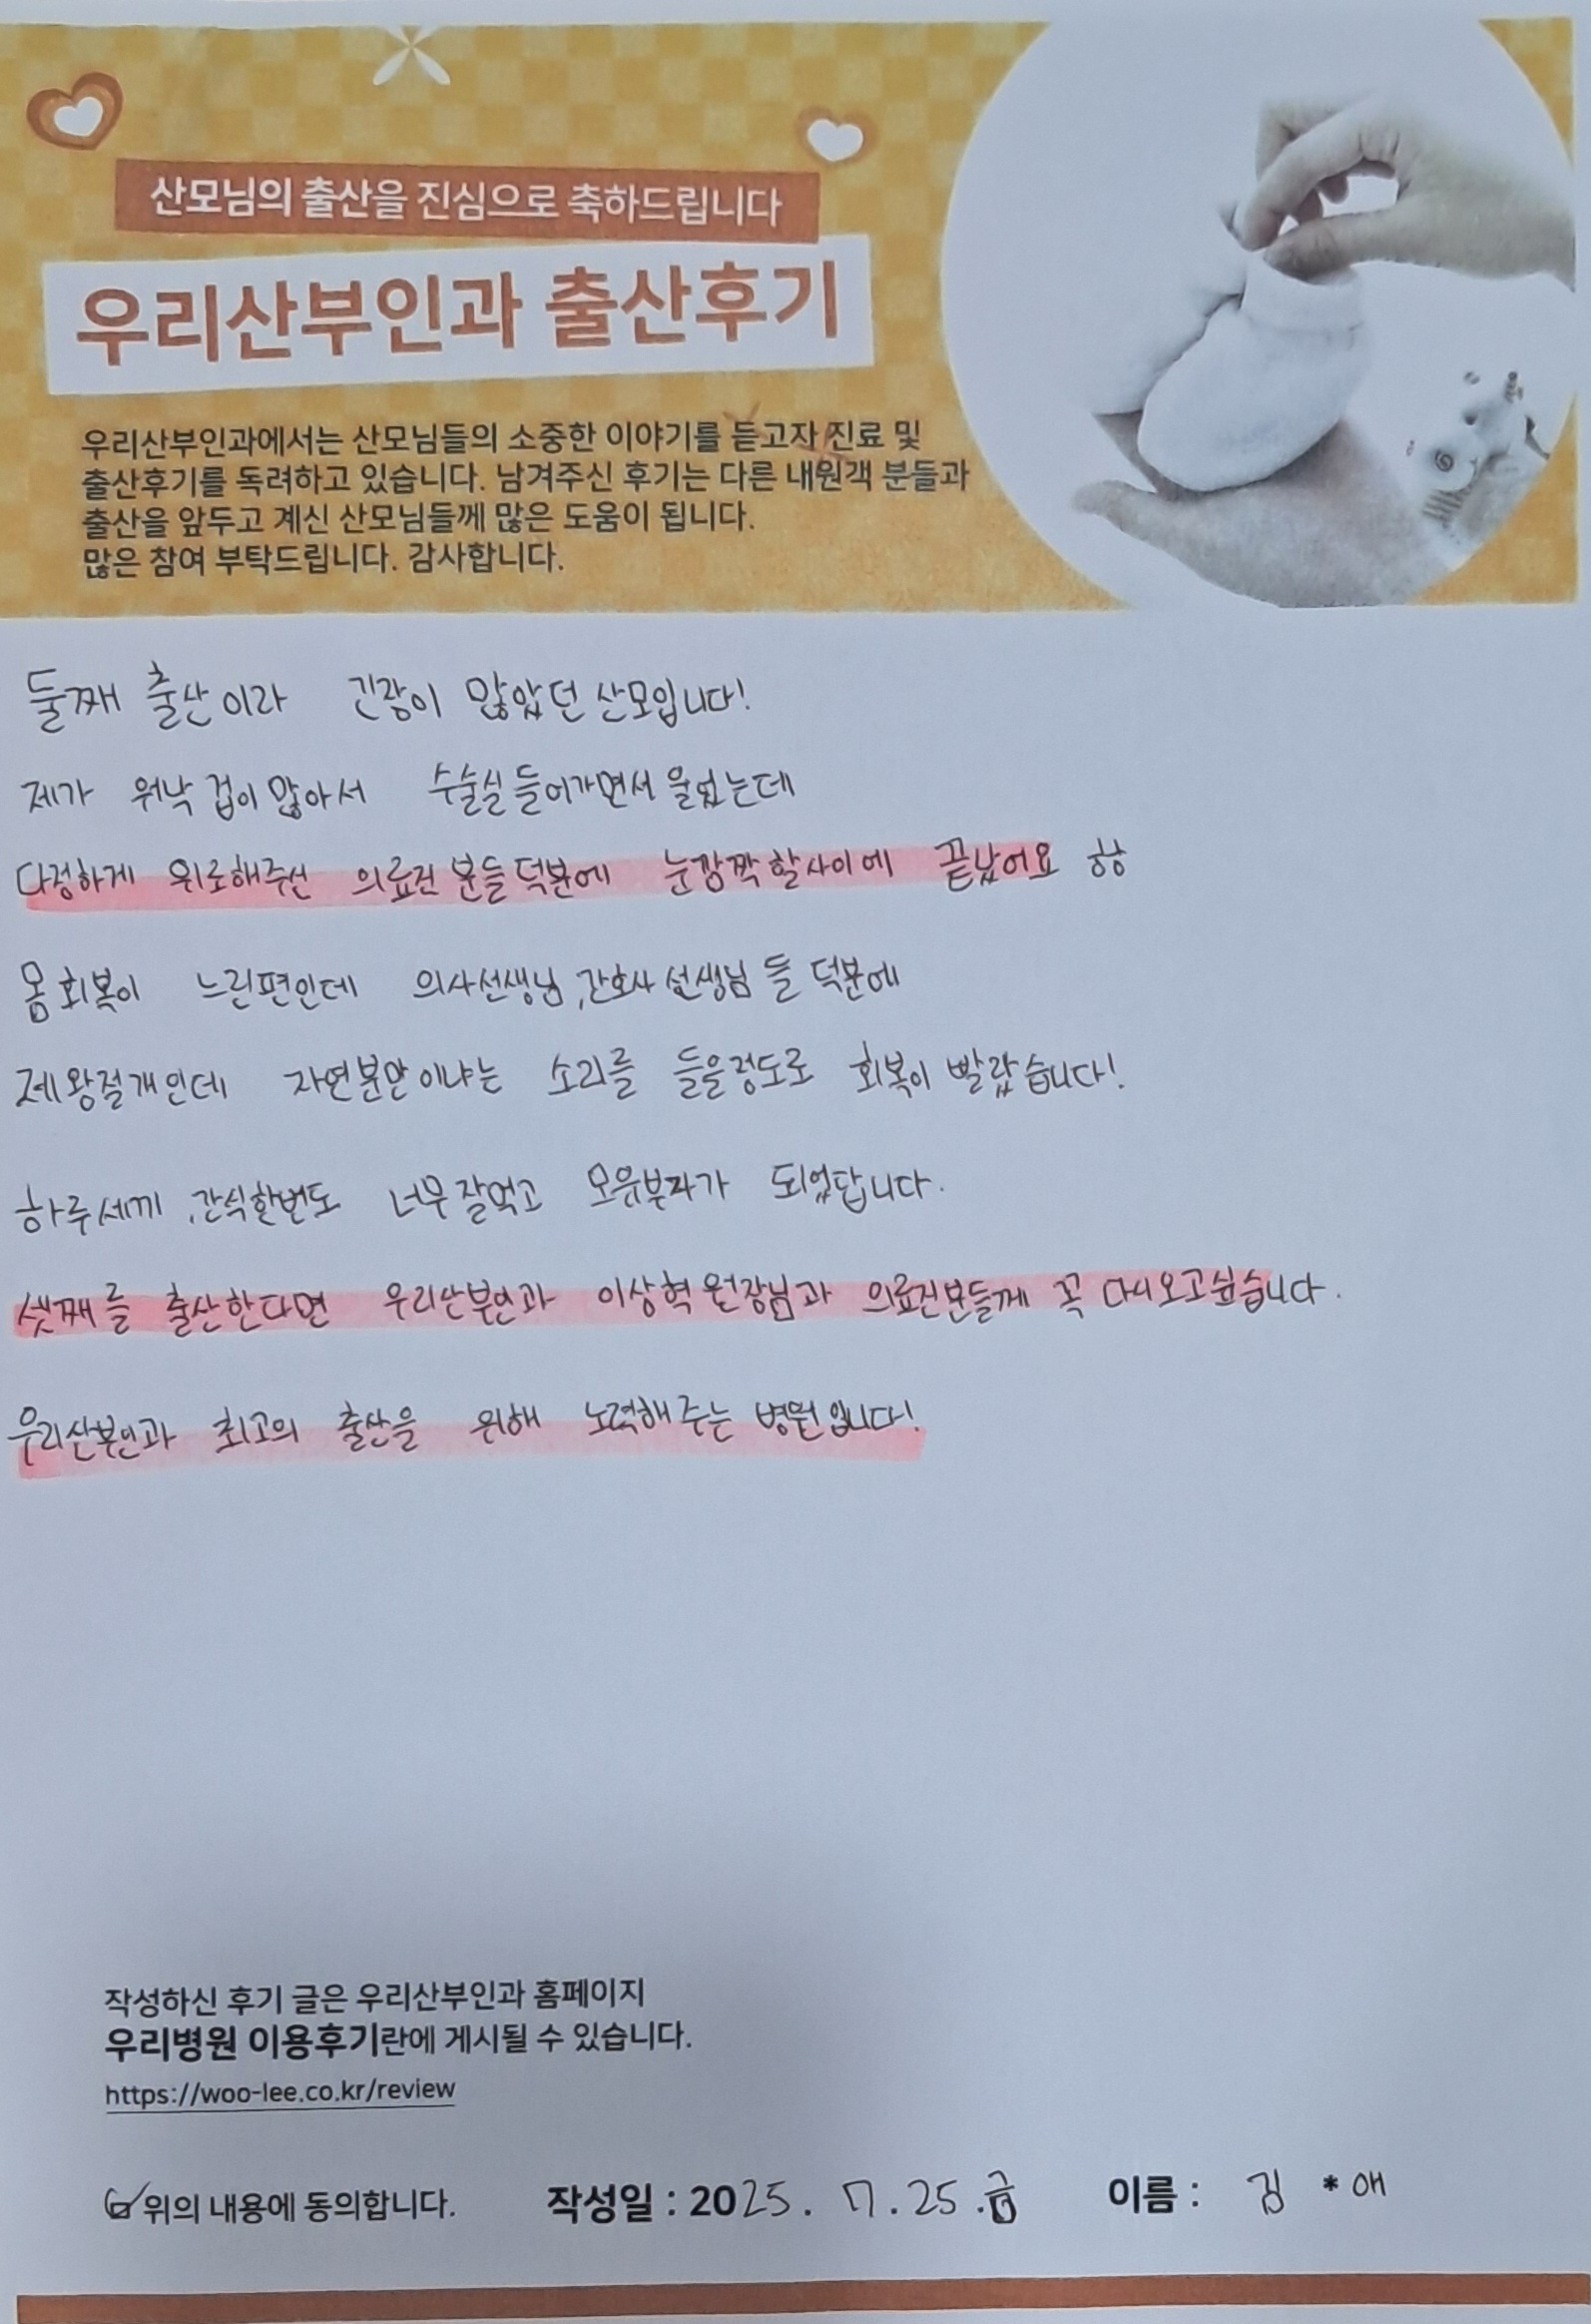 산모님의 출산을 진심으로 축하드립니다
우리산부인과 출산후기
우리산부인과에서는 산모님들의 소중한 이야기를 듣고자 진료 및
출산후기를 독려하고 있습니다. 남겨주신 후기는 다른 내원객 분들과
출산을 앞두고 계신 산모님들께 많은 도움이 됩니다.
많은 참여 부탁드립니다. 감사합니다.
둘째 출산이라 긴장이 많았던 산모입니다!
제가 워낙 겁이 많아서 수술실 들어가면서 울었는데
다정하게 위로해주신 의료진 분들 덕분에 눈깜짝할사이에 끝났어요
몸 회복이 느린편인데 의사선생님, 간호사 선생님 들 덕분에
제왕절개인데 자연분만이냐는 소리를 들을정도로 회복이 빨랐습니다!
하루세끼, 간식한번도 너무 잘먹고 모유부자가 되었답니다.
셋째를 출산한다면 우리산부인과 이상혁 원장님과 의료진분들께 꼭 다시오고싶습니다.
우리산부인과 최고의 출산을 위해 노력해주는 병원입니다!
작성하신 후기 글은 우리산부인과 홈페이지
우리병원 이용후기란에 게시될 수 있습니다.
https://woo-lee.co.kr/review
위의 내용에 동의합니다. 작성일 : 2025. 7. 25.금 이름 : 김 * 애